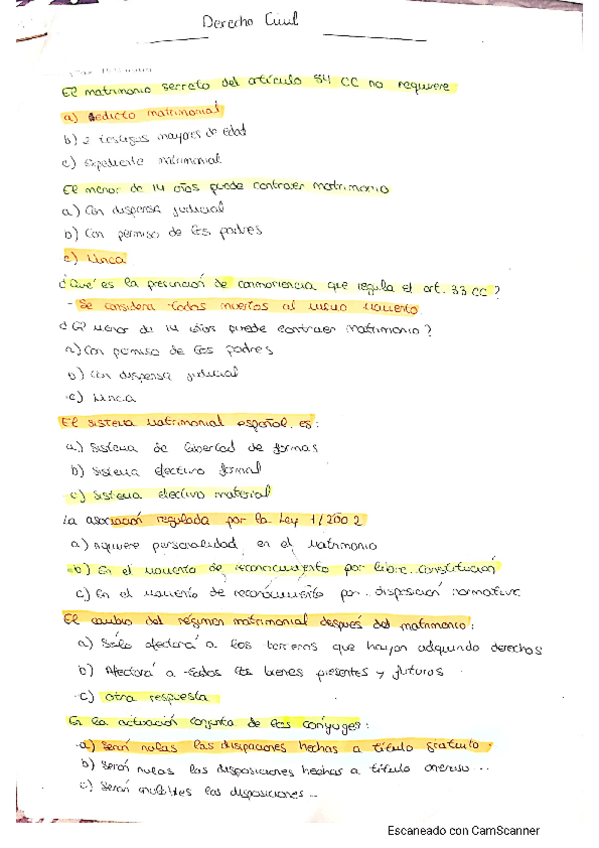 Derecho Civil
El matrimonio secreto del artículo 54 CC no requiere
a) edicto matrimonial
b) 2 testigos mayores de edad
c) Expediente matrimonial
El menor de 14 años puede contraer matrimonio
a) Con dispensa judicial
b) Con permiso de los padres
c) Nunca
¿Qué es la presunción de conmoriencia que regula el art. 33 CC?
- Se considera todos muertos al mismo momento
¿El menor de 14 años puede contraer matrimonio?
a) Con permiso de los padres
b) Con dispensa judicial
c) Nunca
El sistema matrimonial español es:
a) Sistema de libertad de formas
b) Sistema electivo formal
c) Sistema electivo material
La asociación regulada por la Ley 1/2002
a) Adquiere personalidad en el matrimonio
b) En el momento de reconocimiento por libre constitución
c) En el momento de reconocimiento por disposición normativa
El cambio del régimen matrimonial después del matrimonio:
a) Sólo afectará a los terceros que hayan adquirido derechos
b) Afectará a todos los bienes presentes y futuros
c) otra respuesta
En la actuación conjunta de los cónyuges:
a) Serán nulas las disposiciones hechas a título gratuito.
b) Serán nulas las disposiciones hechas a título oneroso ..
c) Serán las disposiciones ...
Escaneado con CamScanner